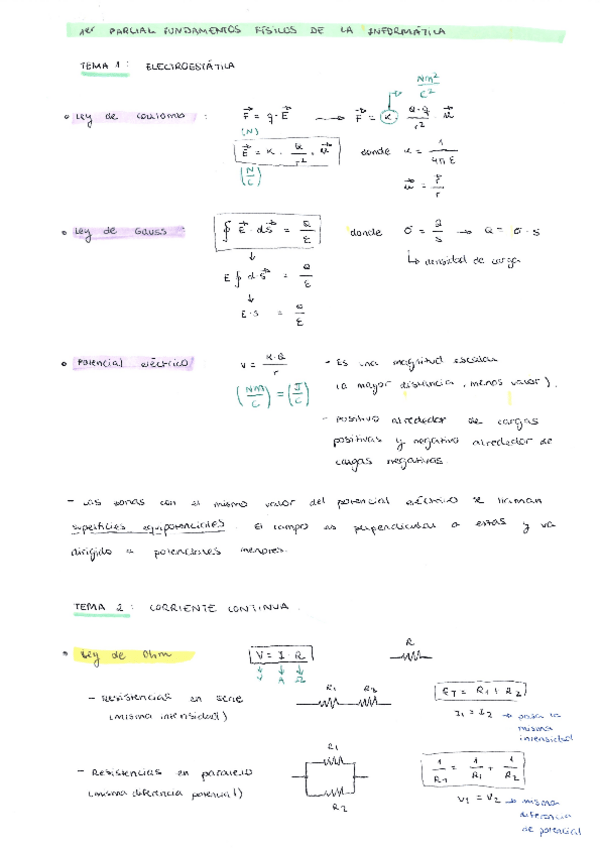 1er PARCIAL FUNDAMENTOS FÍSICOS DE LA INFORMÁTICA
TEMA 1: ELECTROESTÁTICA
Nm²/C²
• Ley de Coulomb : F⃗ = q·E⃗ → F⃗ = K Q·q/r² · u⃗
(N)
E⃗ = K · Q/r² · u⃗ donde K = 1/4πε
(N/C)
u⃗ = r⃗/r
• Ley de Gauss : ∮ E⃗ · dS⃗ = Q/ε donde σ = Q/S → Q = σ · S
↓ ↳ densidad de carga
E ∮ dS⃗ = Q/ε
↓
E·S = Q/ε
• Potencial eléctrico V = K·Q/r - Es una magnitud escalar
(Nm/C) = (J/C) (a mayor distancia, menos valor).
- Positivo alrededor de cargas
positivas y negativo alrededor de
cargas negativas
- Las zonas con el mismo valor del potencial eléctrico se llaman
superficies equipotenciales. El campo es perpendicular a estas y va
dirigido a potenciales menores.
TEMA 2: CORRIENTE CONTINUA
• Ley de Ohm V = I · R R
↓ ↓ ↓
V A Ω
- Resistencias en serie R1 R2 RT = R1 + R2
(misma intensidad) I1 = I2 → pasa la
misma
intensidad
- Resistencias en paralelo R1 1/RT = 1/R1 + 1/R2
(misma diferencia potencial) R2 V1 = V2 → misma
diferencia
de potencial